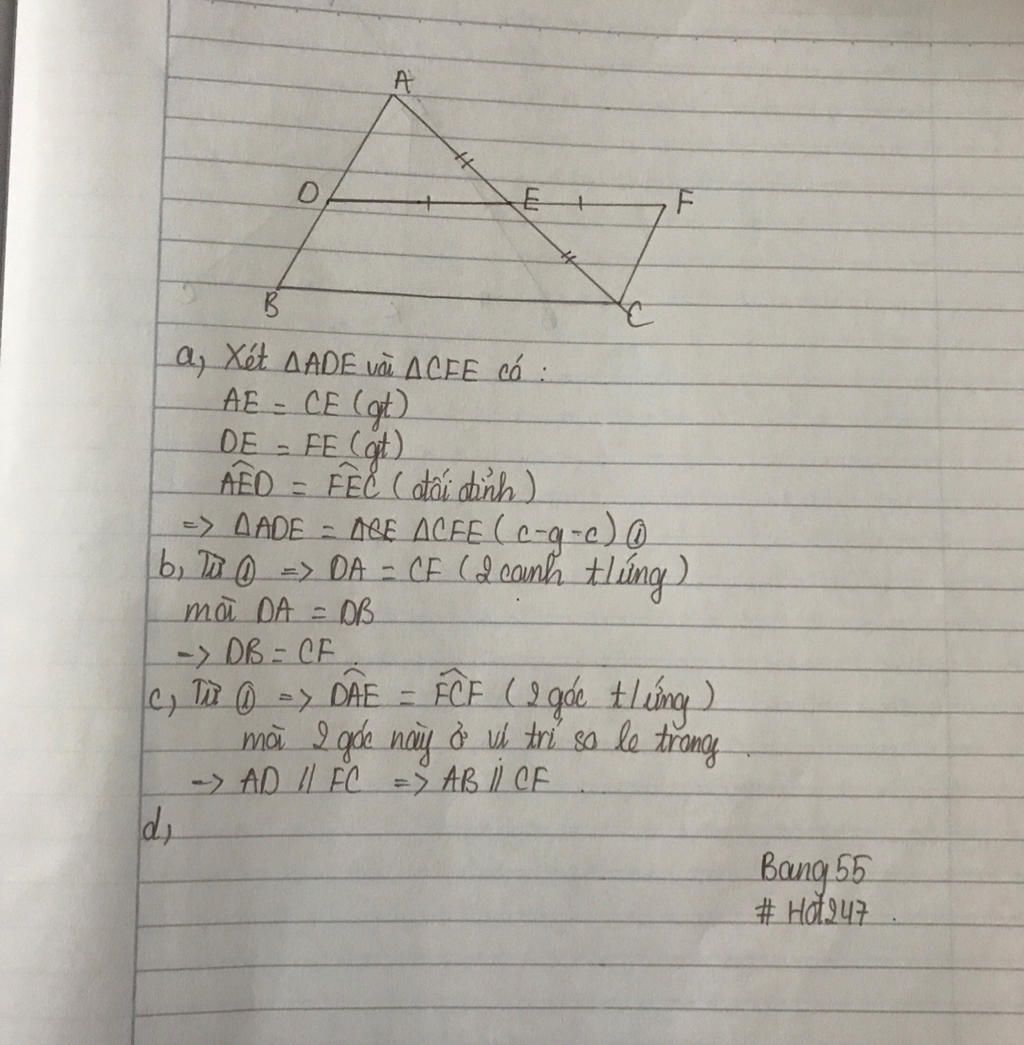 A
D
E
F
B
C
a, Xét ΔADE và ΔCFE có :
AE = CE (gt)
DE = FE (gt)
$\widehat{AED}$ = $\widehat{FEC}$ (đối đỉnh)
=> ΔADE = ΔCFE (c-g-c) ①
b, Từ ① => DA = CF (2 cạnh t/ứng)
mà DA = DB
-> DB = CF.
c, Từ ① => $\widehat{DAE}$ = $\widehat{FCF}$ (2 góc t/ứng)
mà 2 góc này ở vị trí so le trong.
-> AD // FC => AB // CF.
d,
Bang55
# Hđ247.